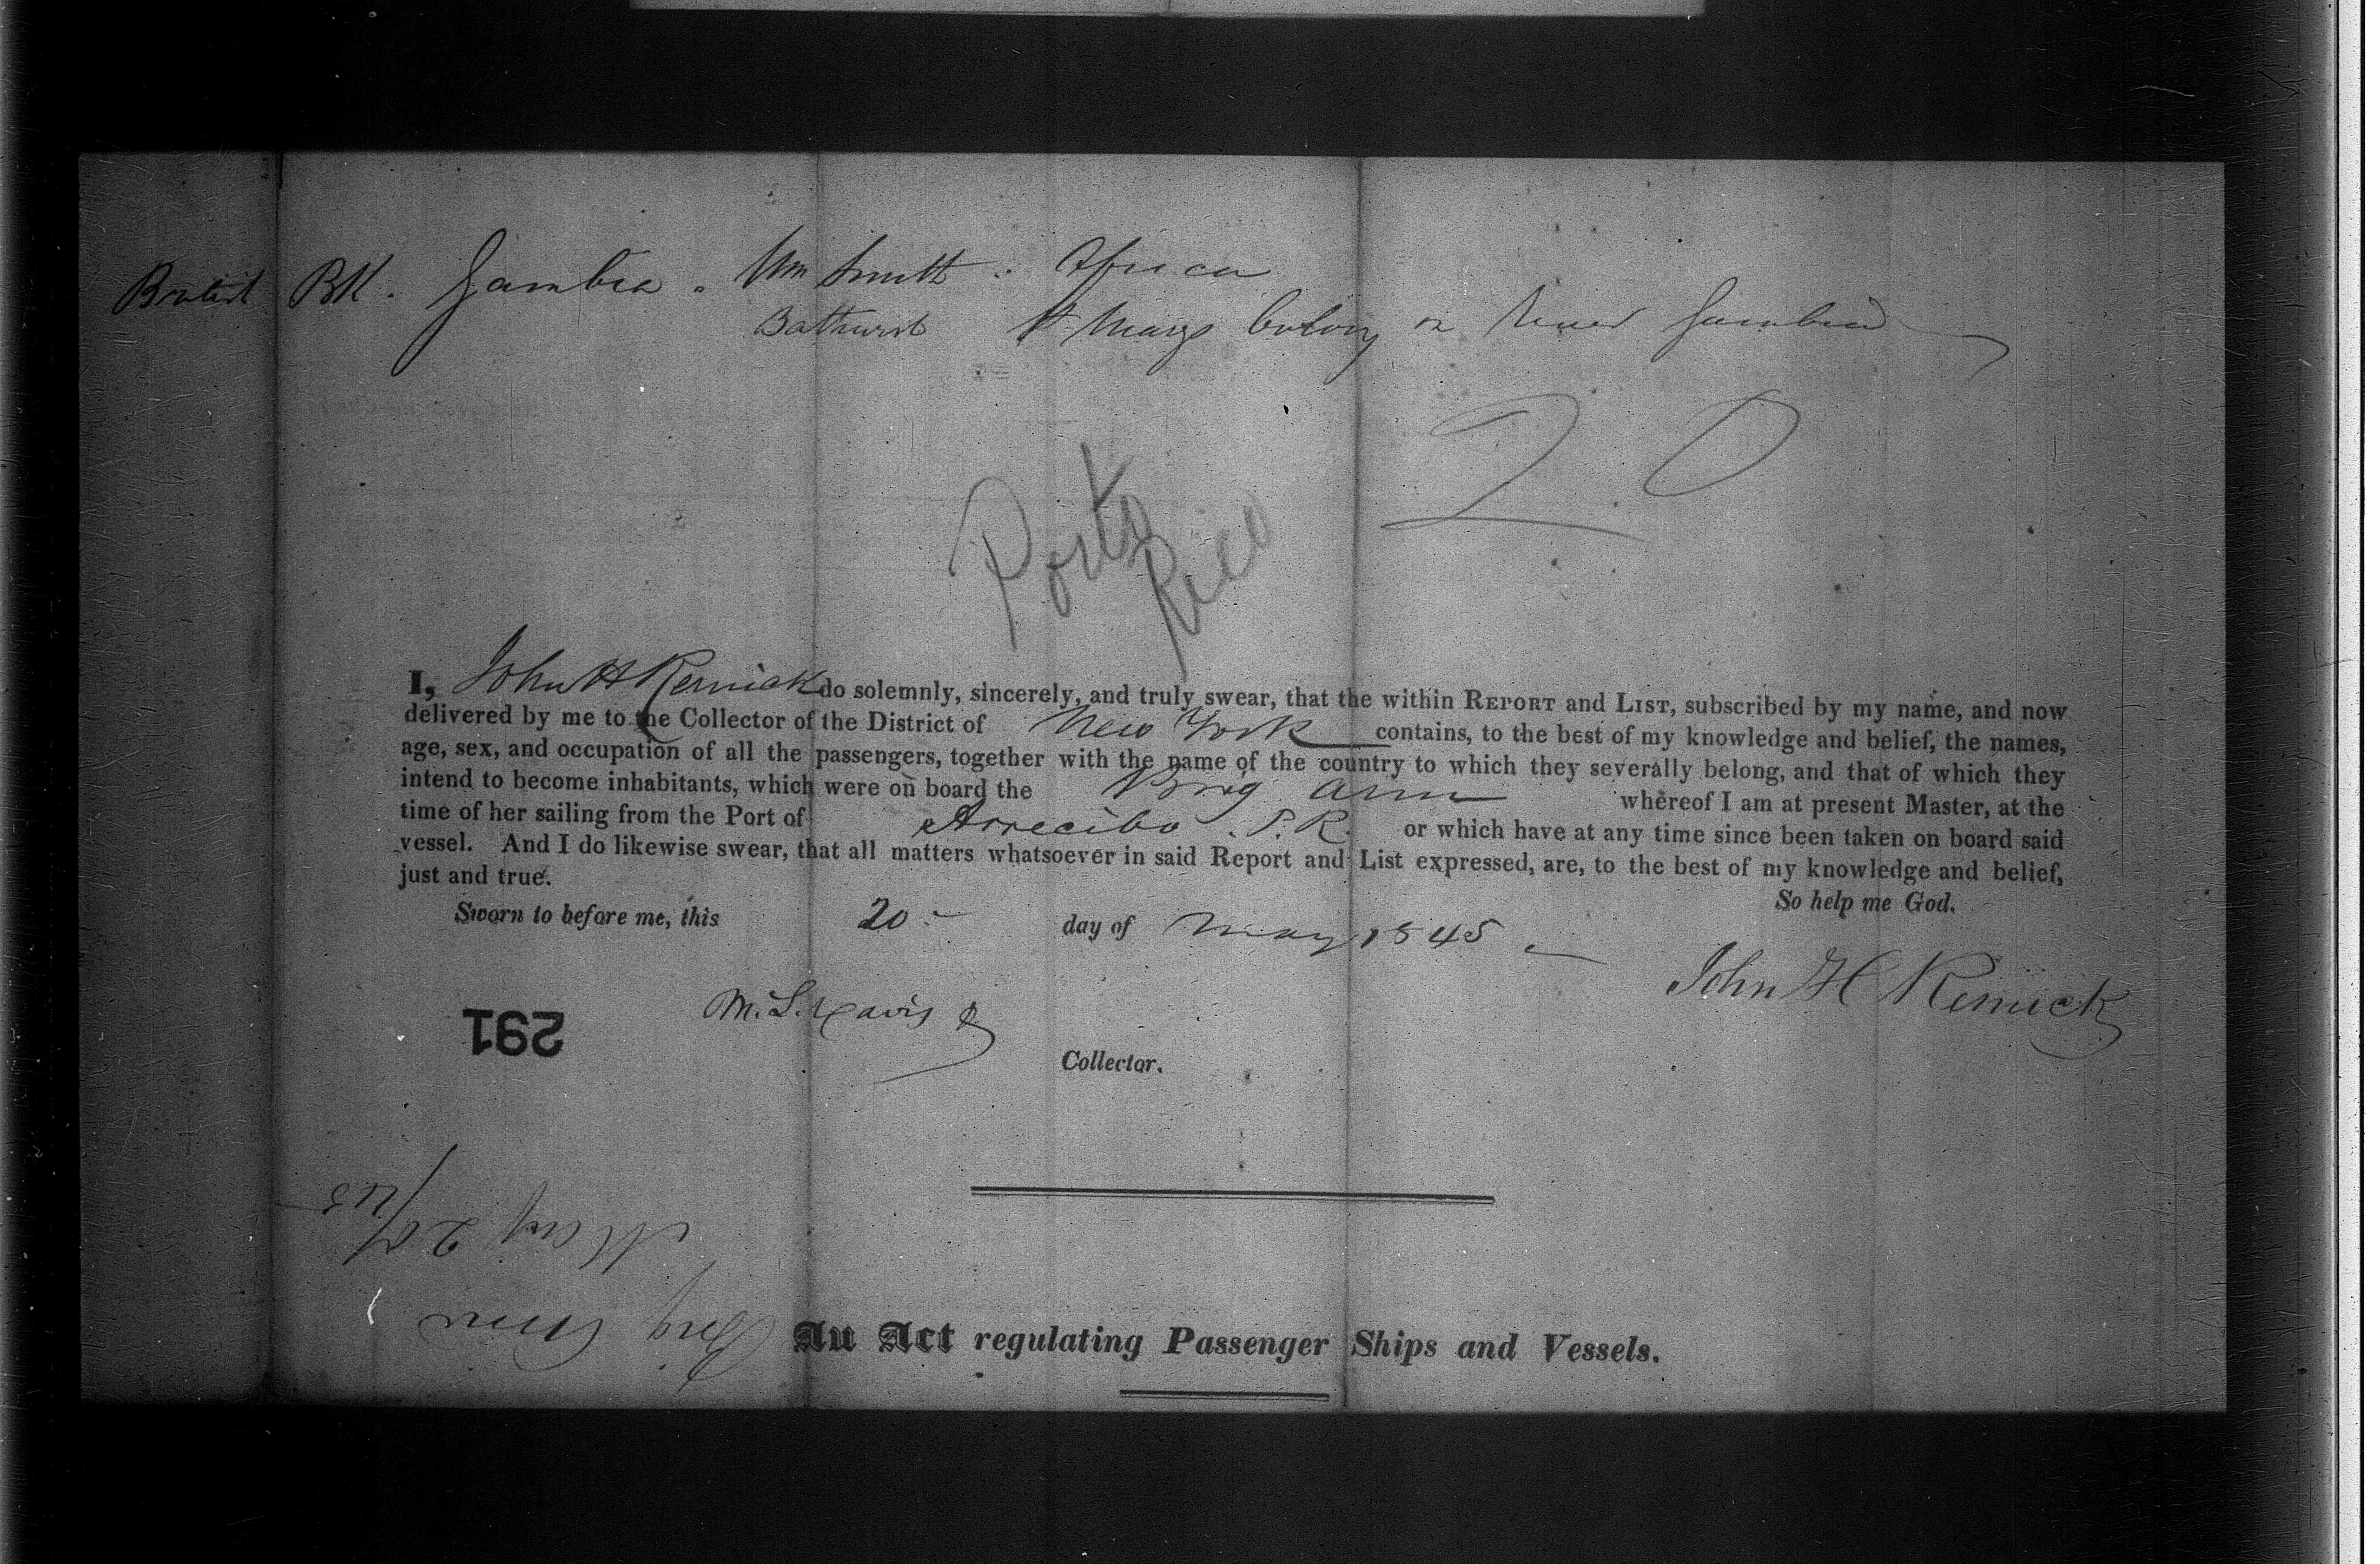 British Bk. Gambia. Wm Smith. Africa
Bathurst St Marys Colony on River Gambia
20
Porto
Rico
I, John H Remick do solemnly, sincerely, and truly swear, that the within REPORT and LIST, subscribed by my name, and now
delivered by me to the Collector of the District of New York contains, to the best of my knowledge and belief, the names,
age, sex, and occupation of all the passengers, together with the name of the country to which they severally belong, and that of which they
intend to become inhabitants, which were on board the Brig Ann whereof I am at present Master, at the
time of her sailing from the Port of Arrecibo P.R. or which have at any time since been taken on board said
vessel. And I do likewise swear, that all matters whatsoever in said Report and List expressed, are, to the best of my knowledge and belief,
just and true.
So help me God.
Sworn to before me, this 20 day of May 1845
John H Remick
M. L. Davis
291
Collector.
Brig Ann
May 20/45
An Act regulating Passenger Ships and Vessels.